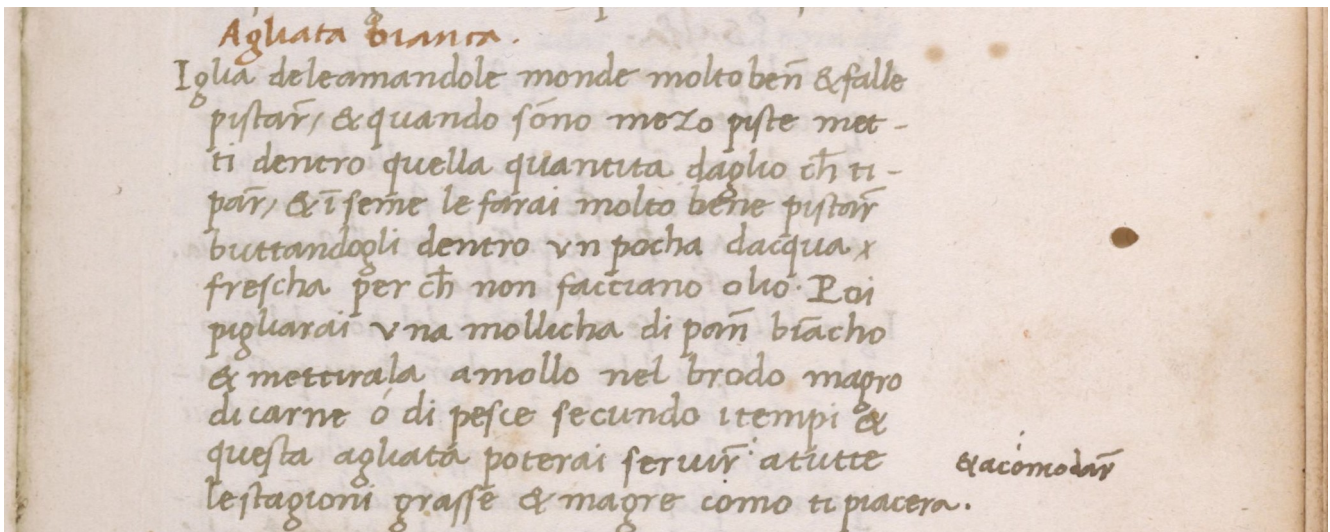 Agliata bianca.
Iglia deleamandole monde molto ben̄ & falle
pistar̄, & quando sono mezo piste met-
ti dentro quella quantita daglio ch̄ ti-
par̄, & ī seme le farai molto bene pistar̄
buttandogli dentro vn pocha dacqua x
frescha per ch̄ non facciano olio. Poi
pigliarai vna mollicha di pan̄ bīacho
& mettirala amollo nel brodo magro
di carne ó di pesce secundo i tempi &
questa agliatá poterai seruir̄ atutte
& acómodar̄
lestagioni grasse & magre como ti piacera.